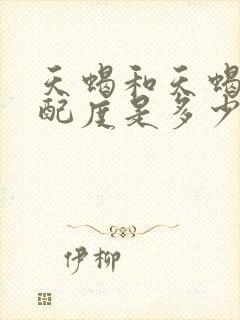 天蝎和天蝎
配度是多少
伊柳